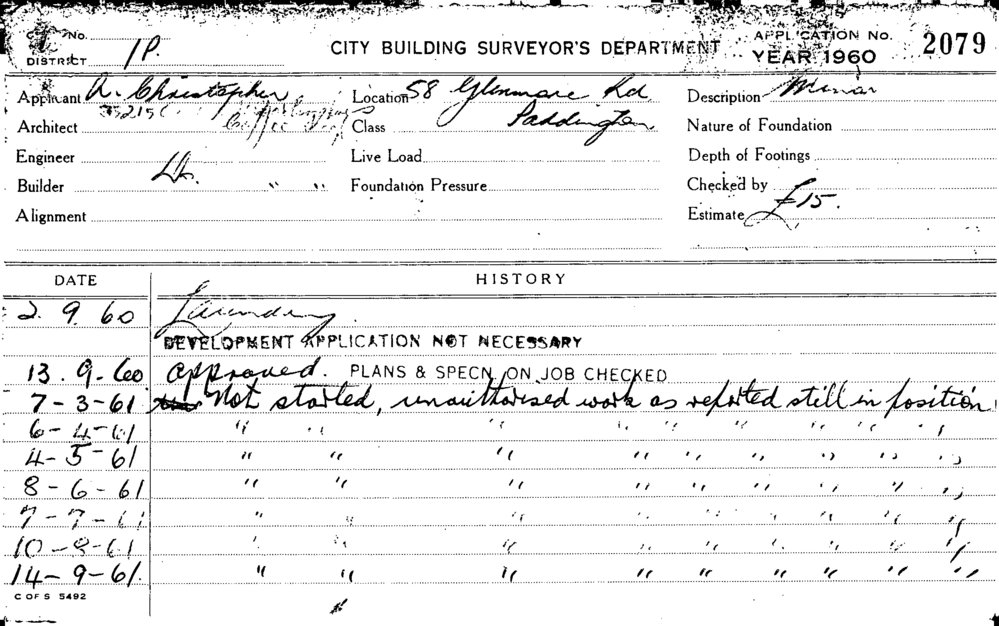 No.
DISTRICT 1P.
CITY BUILDING SURVEYOR'S DEPARTMENT
APPLICATION No. 2079
YEAR 1960
Applicant A. Christopher
Location 58 Glenmore Rd
Paddington
Description Minor
Architect
Class
Nature of Foundation
Engineer
Live Load
Depth of Footings
Builder " "
Foundation Pressure
Checked by
Alignment
Estimate £15.
DATE HISTORY
2. 9. 60 Laundry.
DEVELOPMENT APPLICATION NOT NECESSARY
13. 9. 60 approved. PLANS & SPECN. ON JOB CHECKED
7-3-61 Not started, unauthorised work as reported still in position.
6-4-61 " " " " " " " " " "
4-5-61 " " " " " " " " " "
8-6-61 " " " " " " " " " "
7-7-61 " " " " " " " " " "
10-8-61 " " " " " " " " " "
14-9-61. " " " " " " " " " "
C OF S 5492